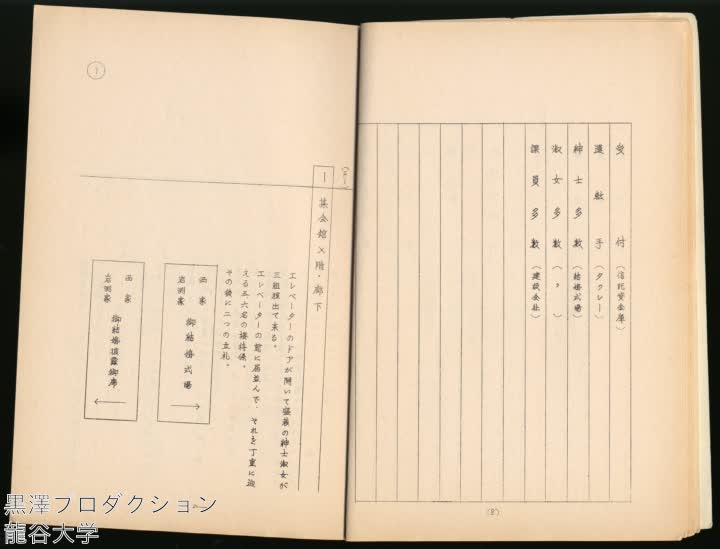 受付（信託資金庫）
運転手（タクシー）
紳士多数（結婚式場）
淑女多数（〃）
課員多数（建設会社）
(8)
1 集会館×階・廊下
エレベーターのドアが開いて盛装の紳士淑女が
三組程出て来る。
エレベーターの前に居並んで、それを丁重に迎
える五六名の接待係。
その後に二つの立札。
西家
岩渕家
御結婚式場
→
西家
岩渕家
御結婚披露御席
←
1
黒澤プロダクション
龍谷大学